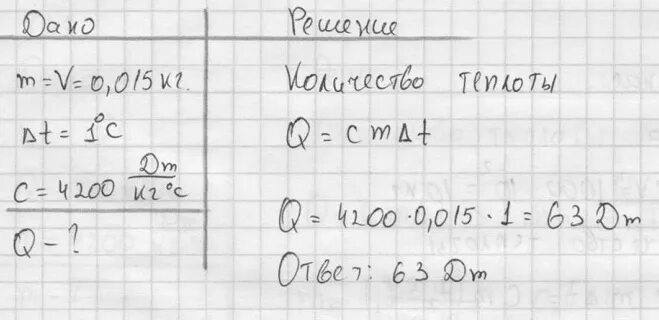 Дано
m = V = 0,015 кг.
Δt = 1°C
C = 4200 Dm/кг°C
Q - ?
Решение
Количество теплоты
Q = c m Δt
Q = 4200 · 0,015 · 1 = 63 Dm
Ответ: 63 Dm